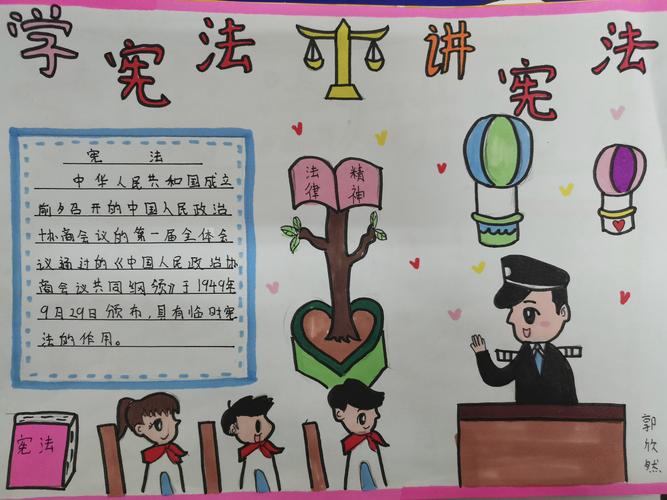 学宪法 讲宪法
宪法
中华人民共和国成立
前夕召开的中国人民政治
协商会议的第一届全体会
议通过的《中国人民政治协
商会议共同纲领》于1949年
9月29日颁布，具有临时宪
法的作用。
法律
精神
宪法
郭欣然